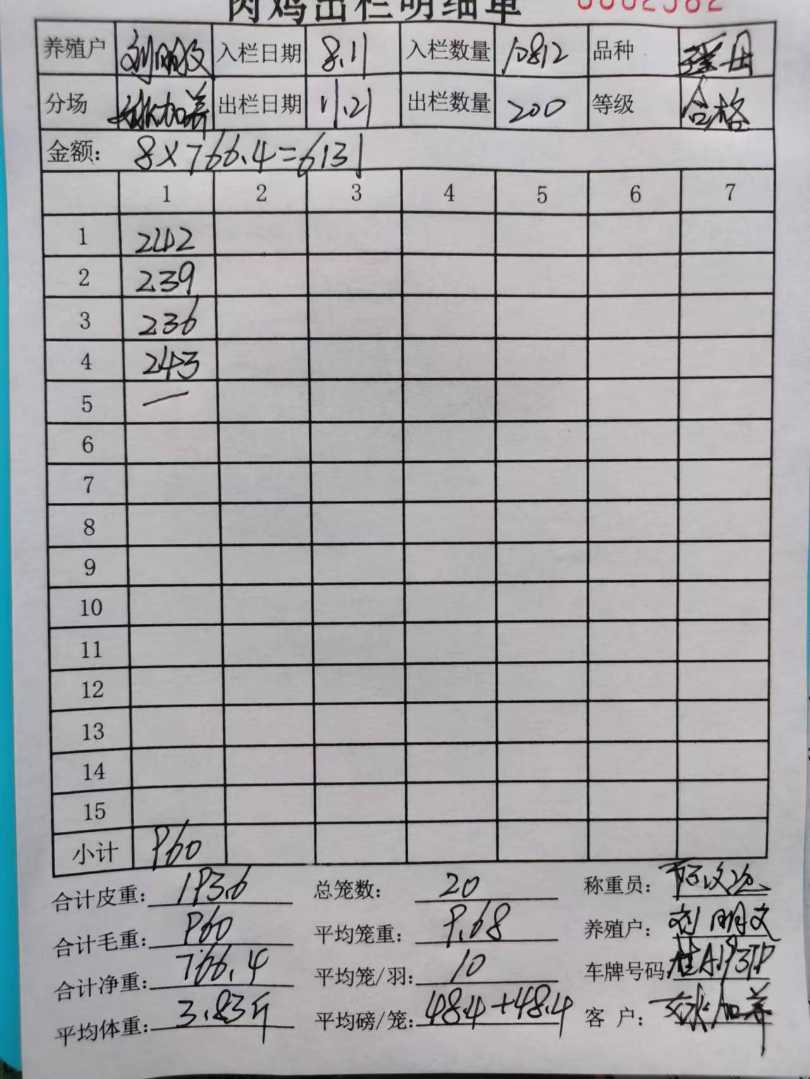 肉鸡出栏明细单 0002582
养殖户 刘明文 入栏日期 8.11 入栏数量 10812 品种
分场 加养 出栏日期 11.21 出栏数量 200 等级 合格
金额: 8×766.4=6131
1 2 3 4 5 6 7
1 242
2 239
3 236
4 243
5 —
6
7
8
9
10
11
12
13
14
15
小计 960
合计皮重: 193.6 总笼数: 20 称重员:
合计毛重: 960 平均笼重: 9.68 养殖户: 刘明文
合计净重: 766.4 平均笼/羽: 10 车牌号码:
平均体重: 3.83斤 平均磅/笼: 48.4+48.4 客 户: 加养